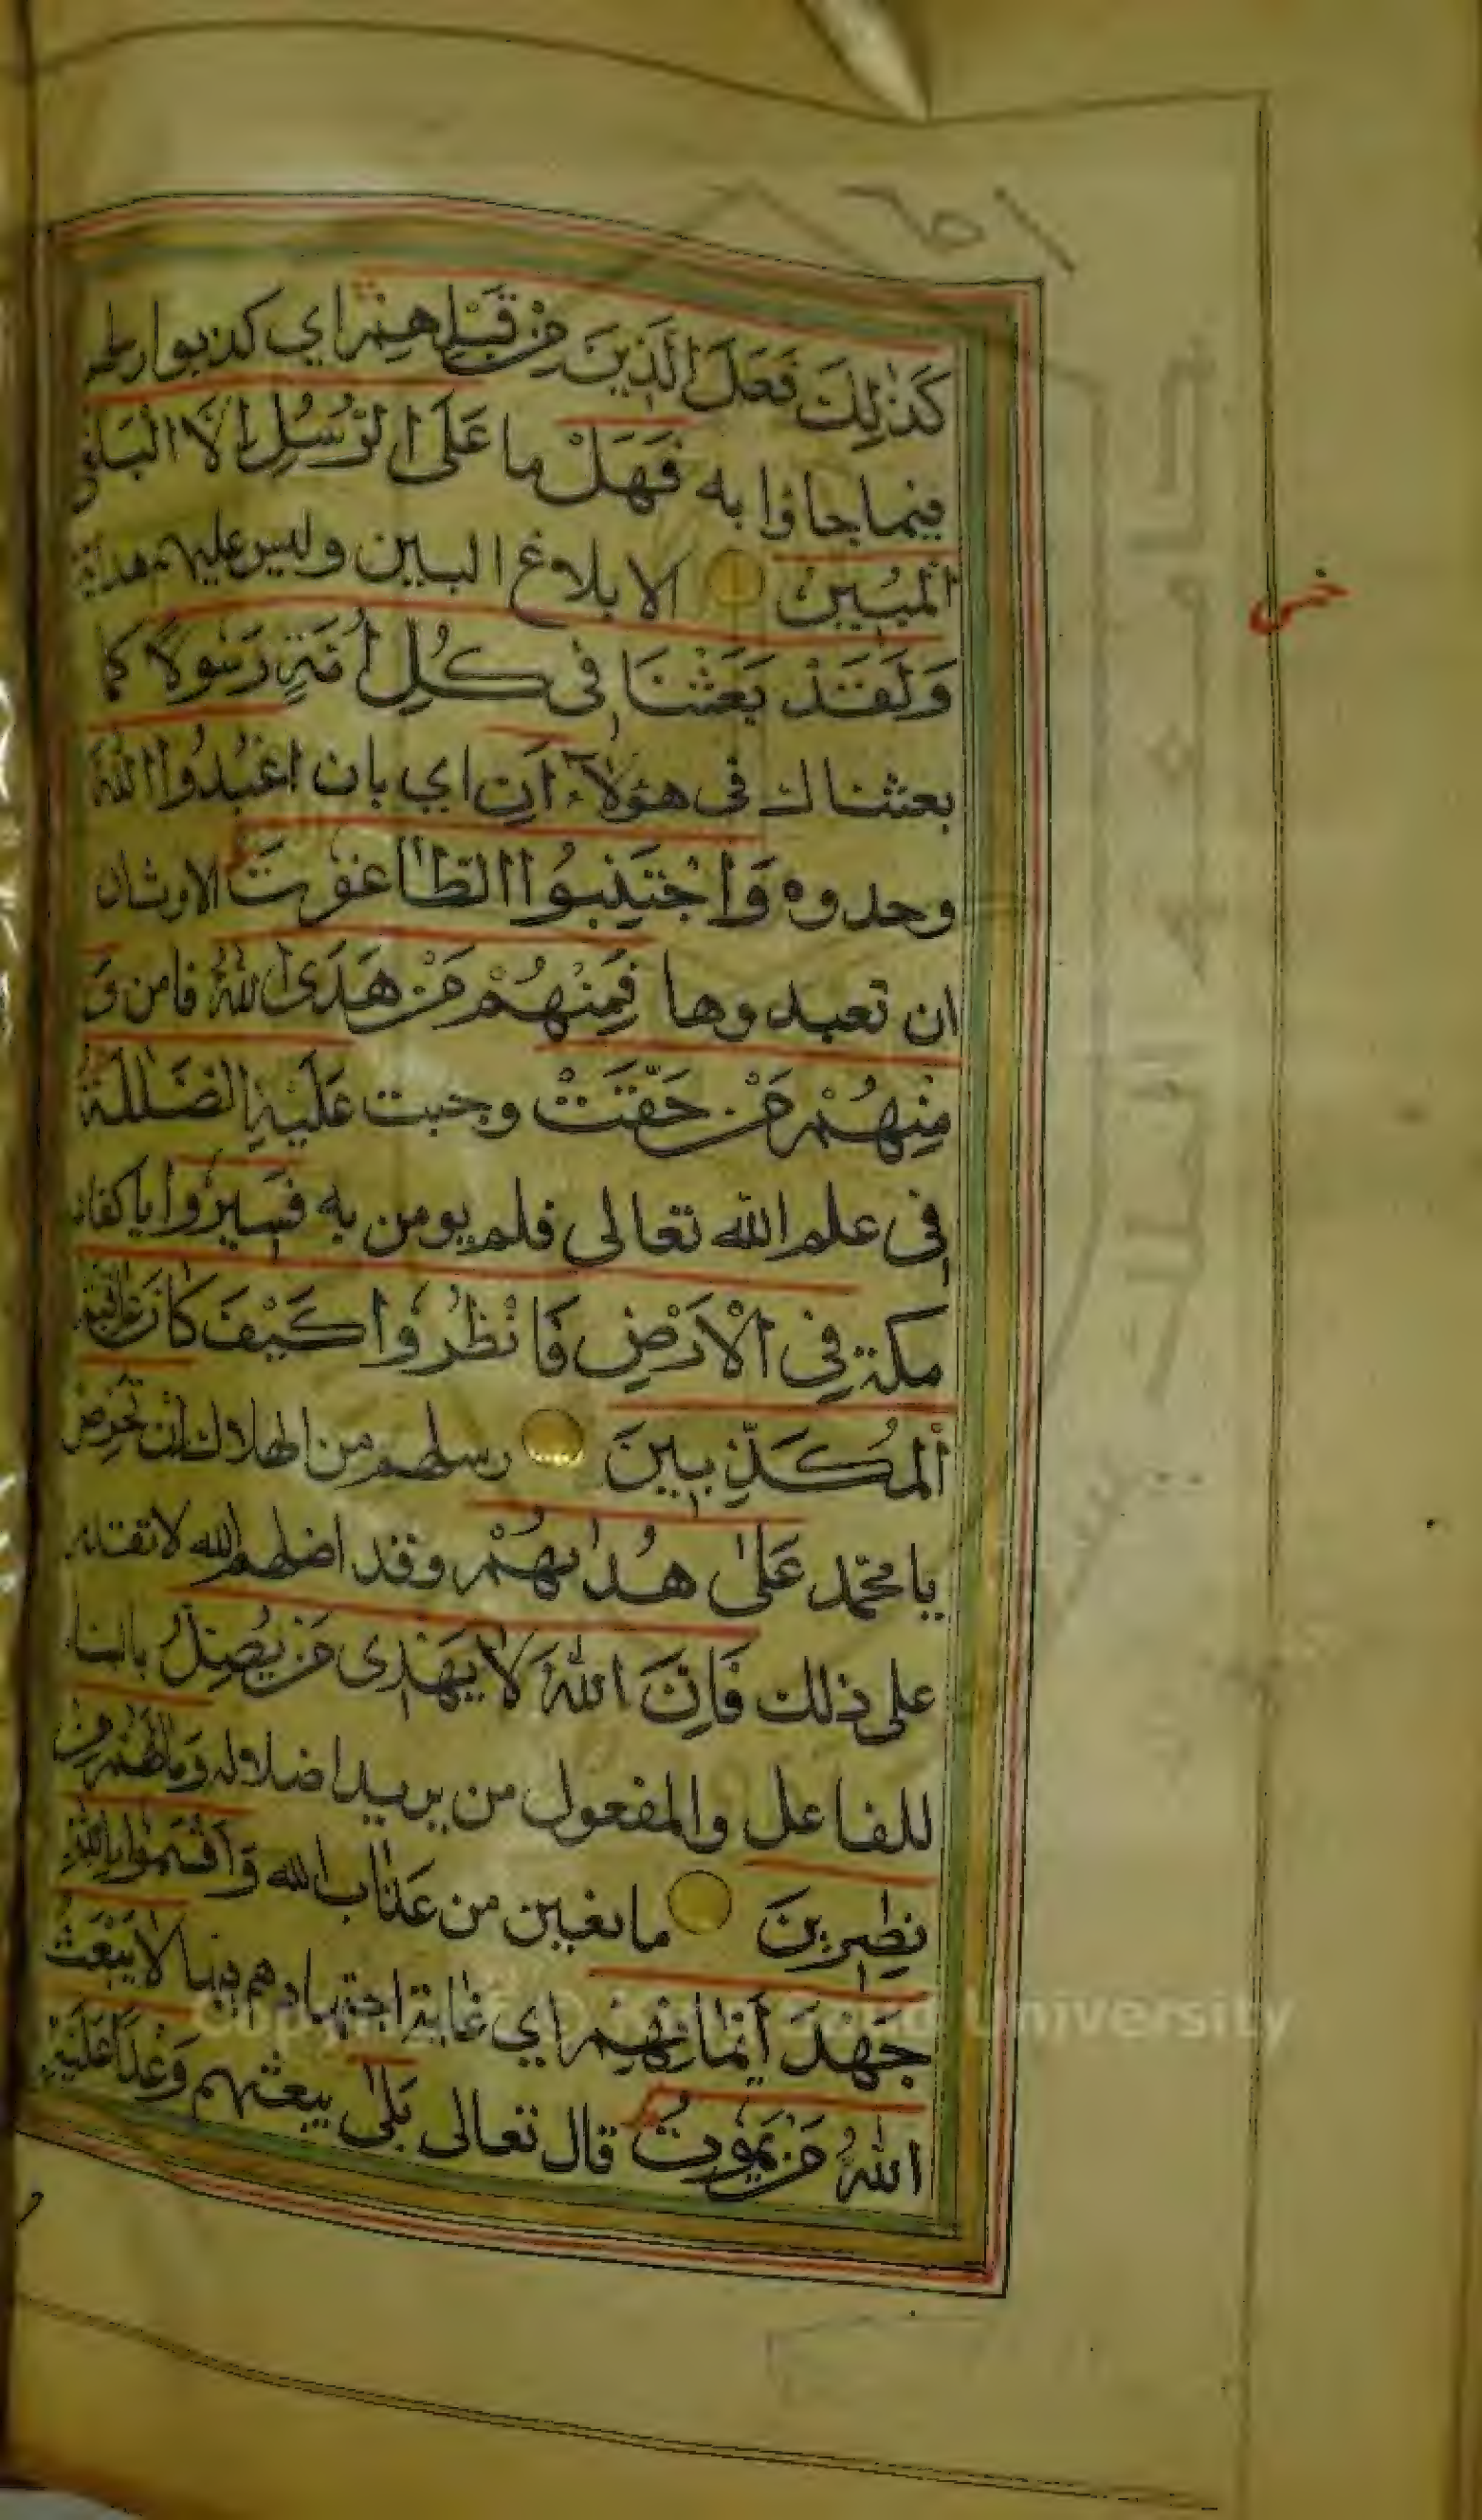 كَذٰلِكَ فَعَلَ الَّذِينَ مِنْ قَبْلِهِمْ اي كذبوا رسلهم
فيما جاؤا به فَهَلْ ما عَلَى الرُّسُلِ اِلَّا الْبَلٰغُ
الْمُبِينُ الابلاغ البين وليس عليهم هداية
وَلَقَدْ بَعَثْنَا فِى كُلِّ اُمَّةٍ رَسُولًا كما
بعثناك فى هؤلآء اَنِ اي بان اعْبُدُوا اللّٰهَ
وحدوه وَاجْتَنِبُوا الطَّاغُوتَ الاوثان
ان تعبدوها فَمِنْهُمْ مَنْ هَدَى اللّٰهُ فامن وَ
مِنْهُمْ مَنْ حَقَّتْ وجبت عَلَيْهِ الضَّلٰلَةُ
فى علم الله تعالى فلم يومن به فَسِيرُوا ياكفار
مكة فِي الْاَرْضِ فَانْظُرُوا كَيْفَ كَانَ عَاقِبَةُ
الْمُكَذِّبِينَ رسلهم من الهلاك اِنْ تَحْرِصْ
يا محمّد عَلٰى هُدٰىهُمْ وقد اضلهم الله لا تقدر
على ذلك فَاِنَّ اللّٰهَ لَا يَهْدِى مَنْ يُضِلُّ بالبناء
للفاعل والمفعول من يريد اضلاله وَمَا لَهُمْ مِنْ
نٰصِرِينَ مانعين من عذاب الله وَاَقْسَمُوا بِاللّٰهِ
جَهْدَ اَيْمَانِهِمْ اي غاية اجتهادهم فيها لَا يَبْعَثُ
اللّٰهُ مَنْ يَمُوتُ قال تعالى بَلٰى يبعثهم وَعْدًا عَلَيْهِ
Copyright © King Saud University